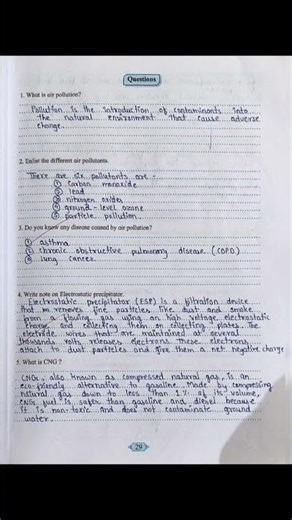 Questions
1. What is air pollution?
Pollution is the introduction of contaminants into
the natural environment that cause adverse
change.
2. Enlist the different air pollutants.
There are six pollutants are -
① carbon monoxide
② lead
③ nitrogen oxides
④ ground-level ozone
⑤ particle pollution.
3. Do you know any disease caused by air pollution?
① asthma
② chronic obstructive pulmonary disease. (COPD)
③ lung cancer.
4. Write note on Electrostatic precipitator.
Electrostatic precipitator (ESP) is a filtration device
that removes fine particles like dust and smoke
from a flowing gas using an high voltage electrostatic
charge and collecting them on collecting plates. The
electrode wires that are maintained at several
thousands volts releases electrons. These electrons
attach to dust particles and give them a net negative charge
5. What is CNG ?
CNG, also known as compressed natural gas, is an
eco-friendly alternative to gasoline. Made by compressing
natural gas down to less than 1% of its volume,
CNG fuel is safer than gasoline and diesel because
it is non-toxic and does not contaminate ground
water.
29